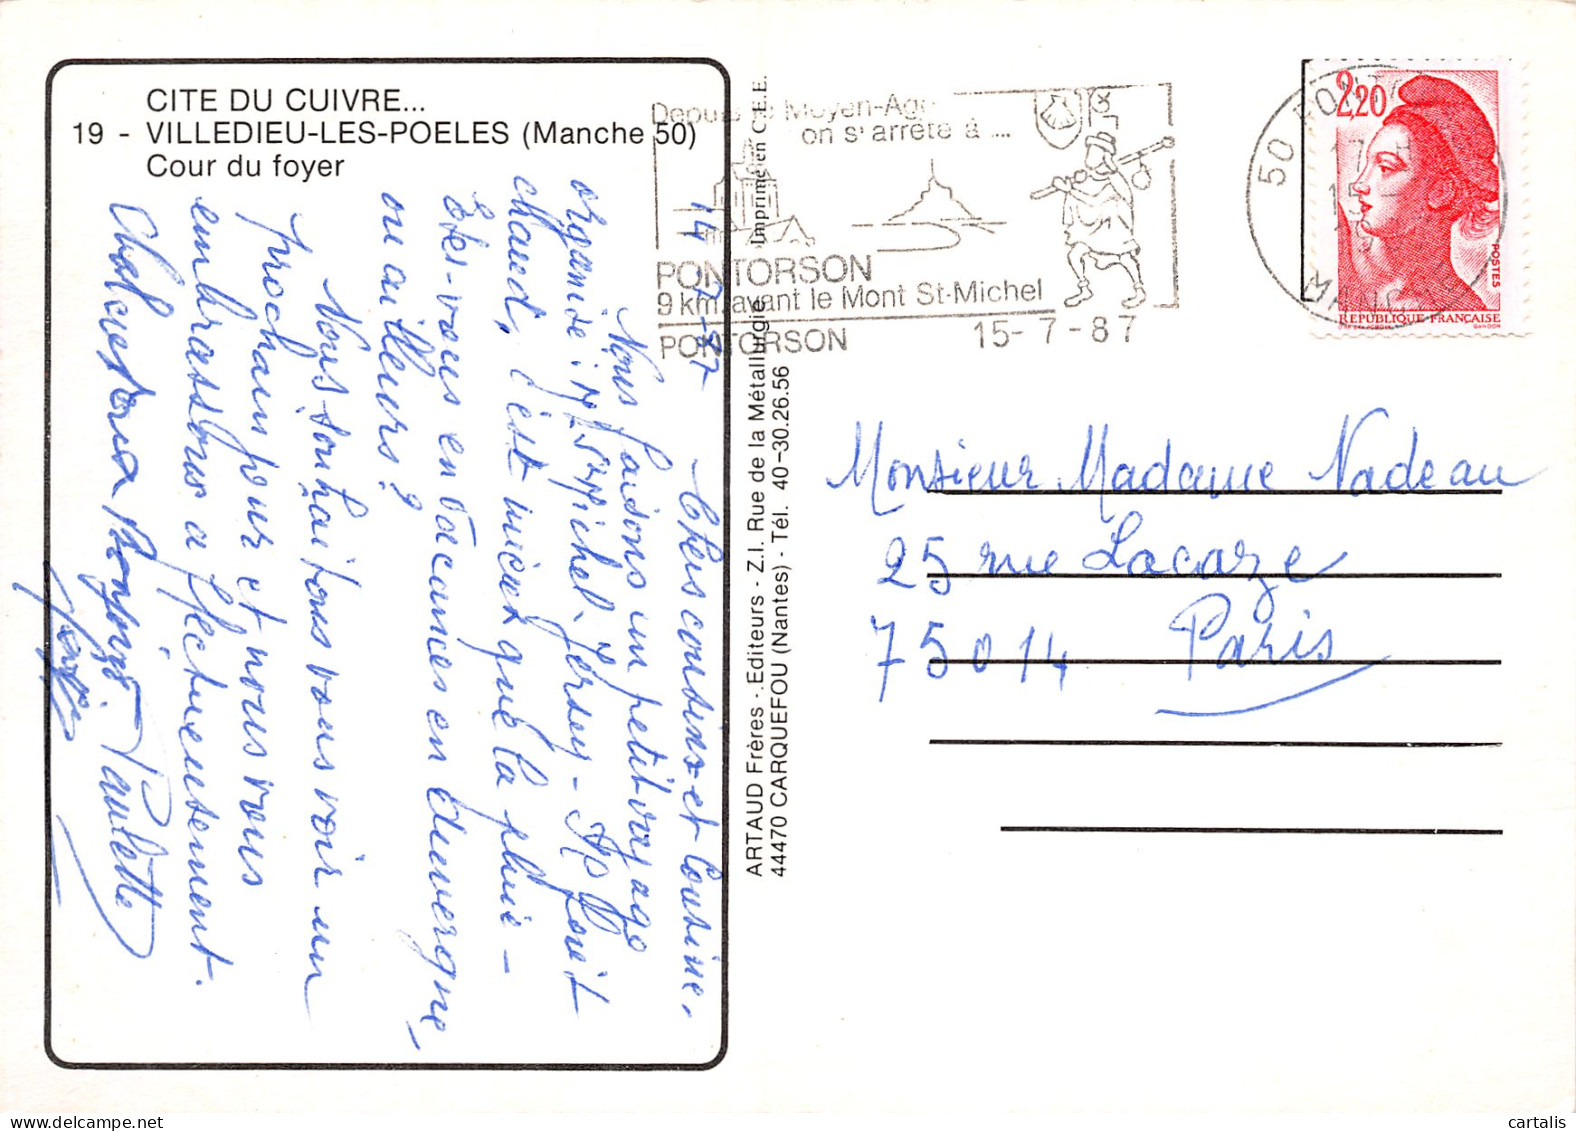 CITE DU CUIVRE...
19 - VILLEDIEU-LES-POELES (Manche 50)
Cour du foyer
14-7-87
Chers cousins et Cousine,
Nous faisons un petit voyage
organisé : Mt St Michel. Jersey - Il fait
chaud, c'est mieux que la pluie -
Etes-vous en vacances en Auvergne,
ou ailleurs ?
Nous souhaitons vous voir un
prochain jour et nous vous
embrassons affectueusement.
Paulette
ARTAUD Frères - Editeurs - Z.I. Rue de la Métallurgie Imprimé en C.E.E.
44470 CARQUEFOU (Nantes) - Tél. 40-30.26.56
Depuis le Moyen-Age
on s'arrête à ....
PONTORSON
9 km. avant le Mont St-Michel
PONTORSON 15-7-87
50 PONT
MANCHE
2,20
POSTES
REPUBLIQUE FRANÇAISE
GANDON
Monsieur Madame Nadeau
25 rue Lacaze
75014 Paris
cartalis